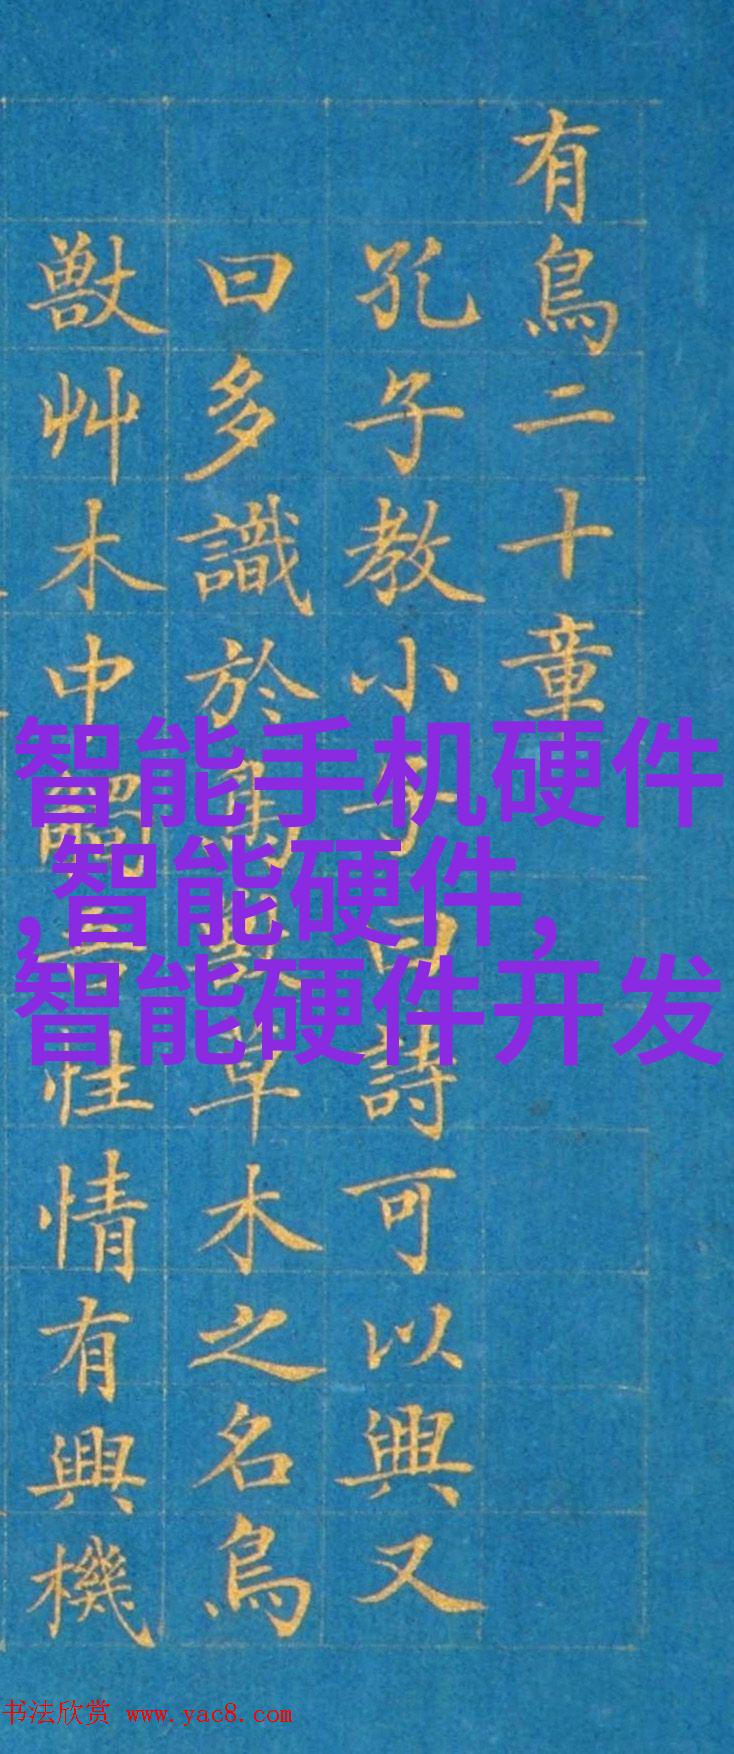 有鳥二十章
孔子教小子曰詩可以興又
曰多識於鳥獸草木之名鳥
獸艸木中性情有興機
智能手机硬件
,智能硬件,
智能硬件开发
书法欣赏 www.yac8.com